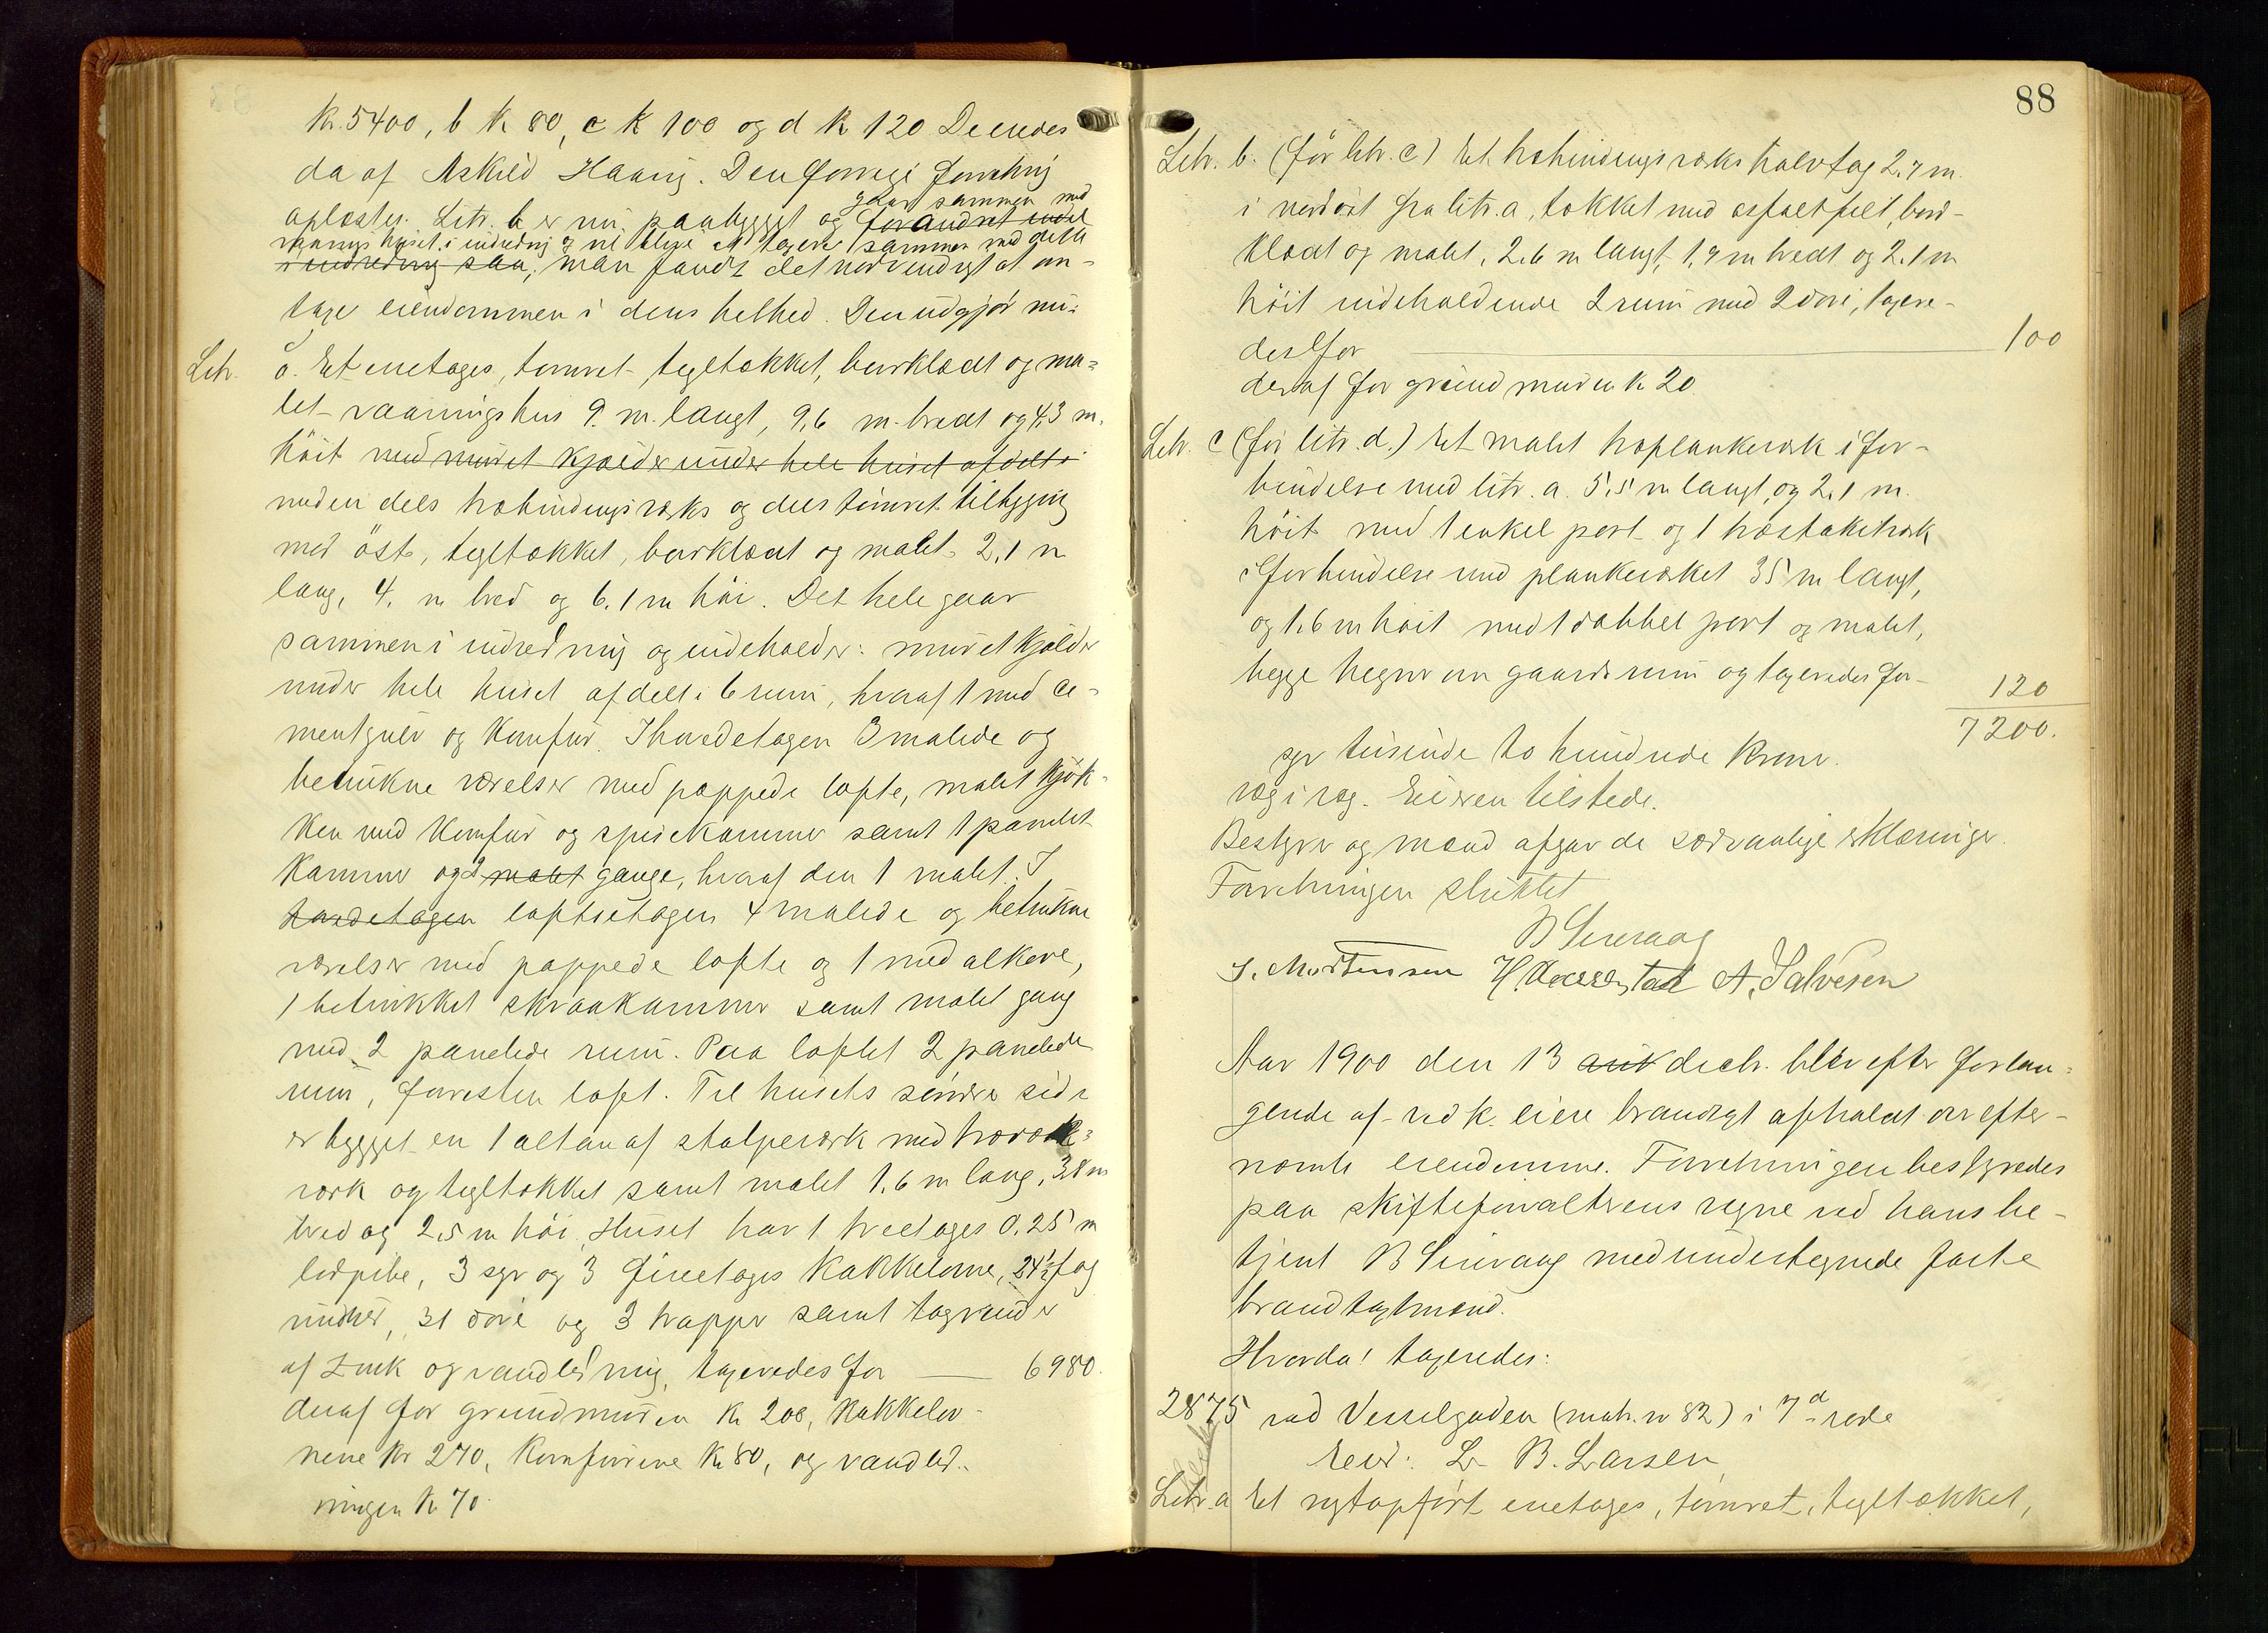 kr. 5400, b kr 80, c kr 100 og d kr 120. De eiedes
da af Askild Haarvig. Den forrige forretning
oplæstes. Litr. b er nu paabygget og forandret endel
gaar sammen med
vaaningshuset i indredning og vil blive at taxere sammen med dette
i indredning saa, man fandt det nødvendigt at om-
taxere eiendommen i dens helhed. Den udgjør nu:
Litr. a. Et enetages, tømret, tegltækket, bordklædt og ma-
let vaaningshus 9. m. langt, 9,6 m. bredt og 4,3 m.
høit med muret kjælder under hele huset afdelt i
med en dels træbindingsværks og dels tømret tilbygning
mod øst, tegltækket, bordklædt og malet, 2,1 m
lang, 4. m bred og 6,1 m høi. Det hele gaar
sammen i indredning og indeholder: muret kjælder
under hele huset afdelt i 6 rum, hvoraf 1 med ce-
mentgulv og komfur. I hovedetagen 3 malede og
betrukne værelser med pappede lofte, malet kjøk-
ken med komfur og spisekammer samt 1 panelet
kammer og 2 malet gange, hvoraf den 1 malet. I
hovedetagen loftsetagen 4 malede og betrukne
værelser med pappede lofte og 1 med alkove,
1 betrukket skraakammer samt malet gang
med 2 panelede rum. Paa loftet 2 panelede
rum, forresten loft. Til husets søndre side
er bygget en 1 altan af stolpeværk med træræk-
værk og tegltækket samt malet 1,6 m lang, 3,8 m
bred og 2,5 m høi. Huset har 1 treetages 0,25 m
ledpibe, 3 syv og 3 fireetages kakkelovne, 24½ fag
vinduer, 31 døre og 3 trapper samt tagrender
af zink og vandledning, taxeredes for — 6980.
deraf for grundmuren kr 200, kakkelov-
nene kr 270, komfurene kr 80, og vandled-
ningen kr 70.
88
Litr. b. (før litr. c) Et træbindingsværks halvtag 2,7 m.
i nordøst fra litr. a, tækket med asfaltfilt, bord-
klædt og malet, 2,6 m langt, 1,7 m bredt og 2,1 m
høit indeholdende 2 rum med 2 døre, taxere-
des for — 100
deraf for grundmuren kr 20.
Litr. c (før litr. d.) Et malet træplankeværk i for-
bindelse med litr. a. 5,5 m langt, og 2,1 m.
høit med 1 enkel port og 1 træstakitværk
i forbindelse med plankeværket 35 m langt,
og 1,6 m høit med 1 dobbel port og malet,
begge hegner om gaardsrum og taxeredes for — 120
7200.
syv tusinde to hundrede kroner.
væg i væg. Eieren tilstede.
Bestyrer og mænd afgav de sædvanlige erklæringer.
Forretningen sluttet
B Sirevaag
S. Mortensen A. Salvesen
Aar 1900 den 13 decbr. blev efter forlan-
gende af vedk. eiere brandtaxt afholdt over efter-
nævnte eiendomme. Forretningen bestyredes
paa skifteforvalterens vegne ved hans be-
tjent B Sirevaag med undertegnede faste
brandtaxtmænd.
Hvorda! taxeredes:
2875 ved Vesselgaden (matr. nr 82) i 7d rode
Eier: L. B. Larsen
Litr. a Et nytopført enetages, tømret, tegltækket,